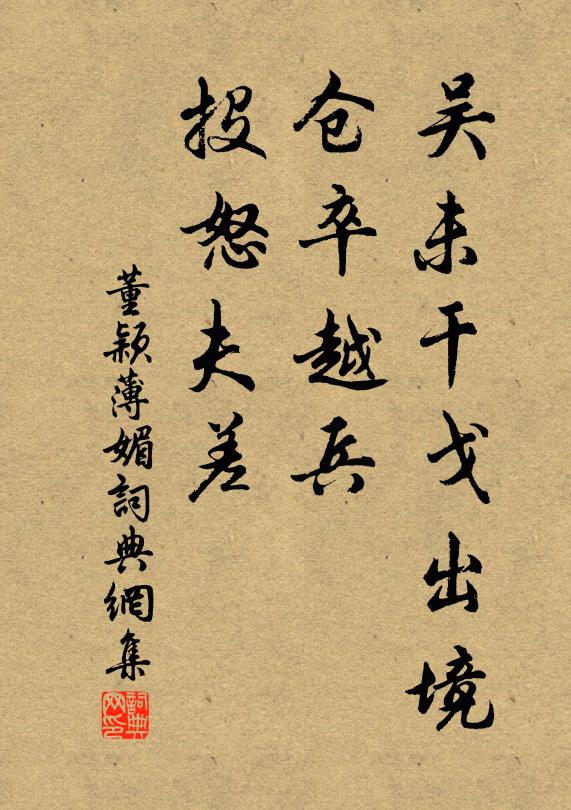 吴未干戈出境
仓卒越兵
投怒夫差
董颖薄媚詞典網集
詞典
网印